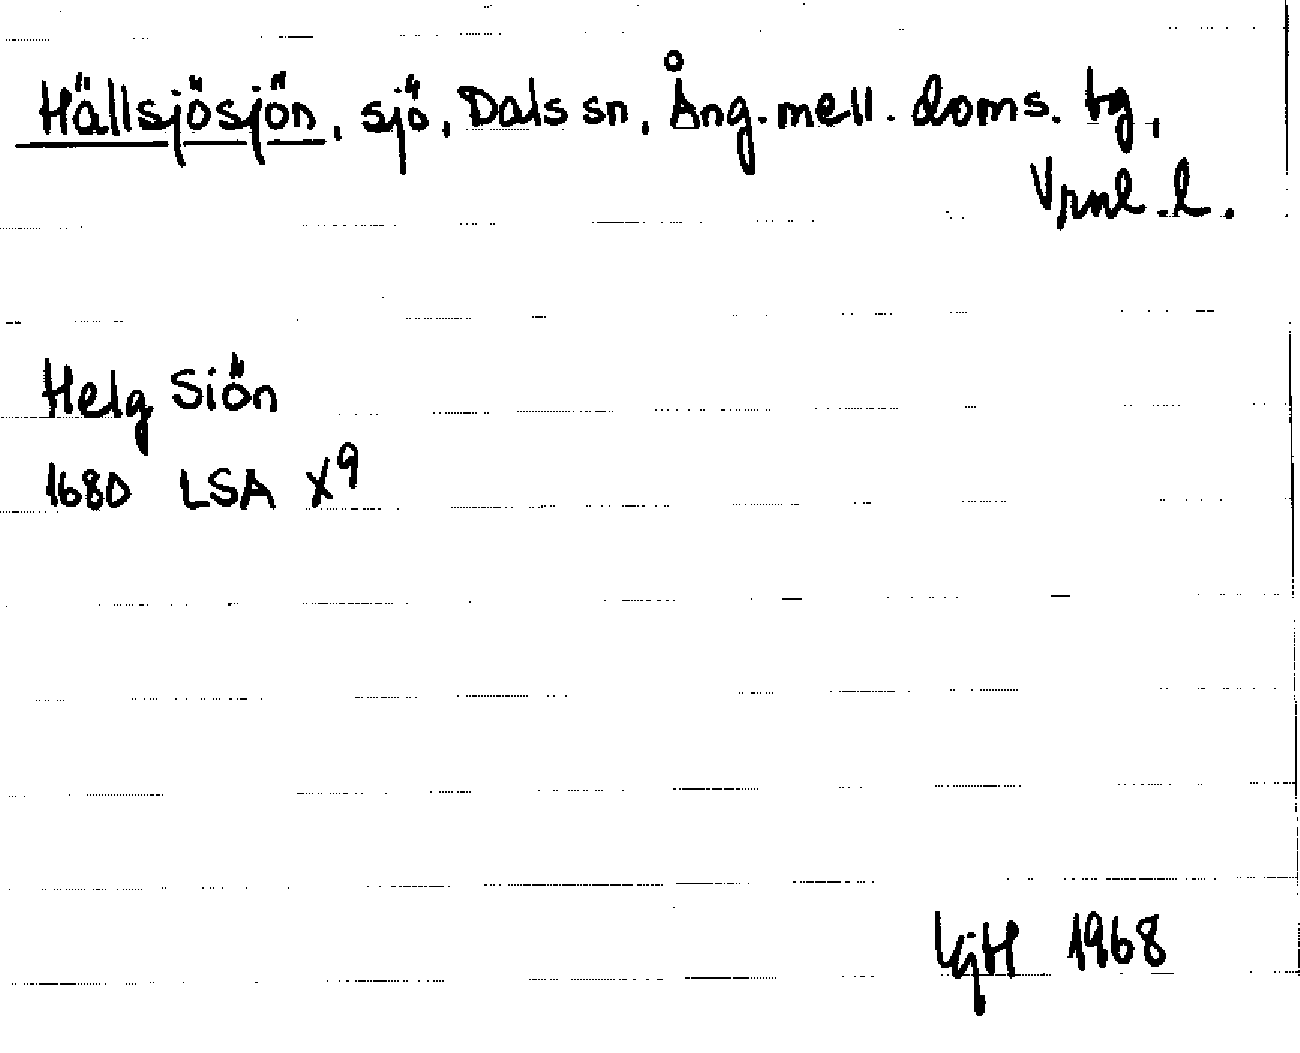 Hällsjösjön, sjö, Dals sn, Ång. mell. doms. tg,
Vrnl. l.
Helg Siön
1680 LSA X9
LjH 1968